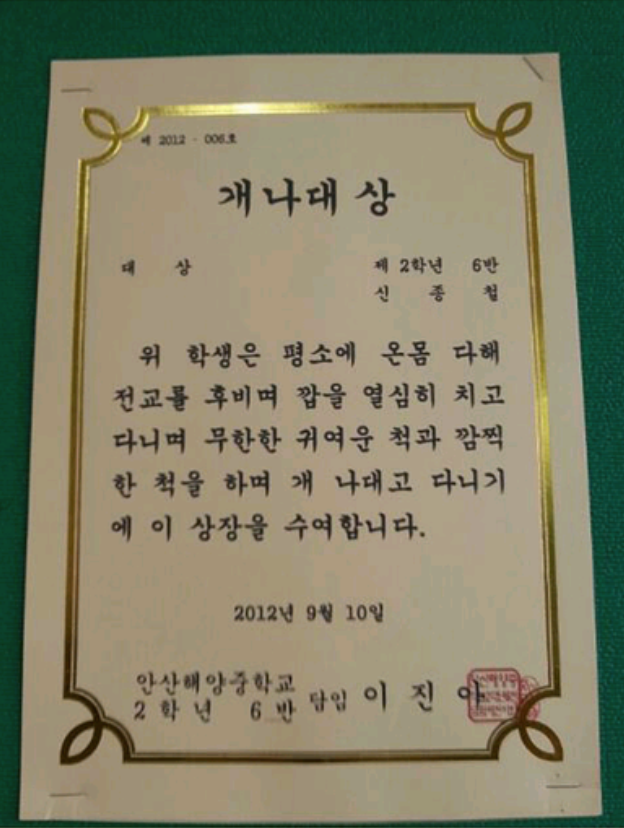 제 2012 - 006호
개나대상
대 상 제 2학년 6반
신 종 철
위 학생은 평소에 온몸 다해
전교를 후비며 깝을 열심히 치고
다니며 무한한 귀여운 척과 깜찍
한 척을 하며 개 나대고 다니기
에 이 상장을 수여합니다.
2012년 9월 10일
안산해양중학교
2 학 년 6 반 담임 이 진 아